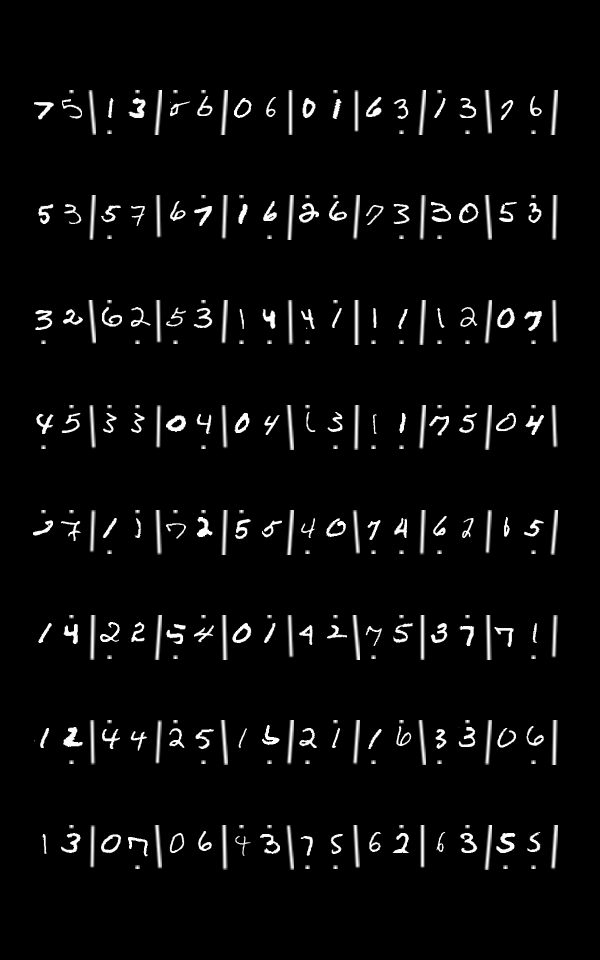 7 5 | 1 3 | 5 6 | 0 6 | 0 1 | 6 3 | 1 3 | 7 6 |
5 3 | 5 7 | 6 7 | 1 6 | 2 6 | 7 3 | 3 0 | 5 3 |
3 2 | 6 2 | 5 3 | 1 4 | 4 1 | 1 1 | 1 2 | 0 7 |
4 5 | 3 3 | 0 4 | 0 4 | 1 3 | 1 1 | 7 5 | 0 4 |
2 7 | 1 1 | 7 2 | 5 5 | 4 0 | 7 4 | 6 2 | 1 5 |
1 4 | 2 2 | 5 4 | 0 1 | 4 2 | 7 5 | 3 7 | 7 1 |
1 2 | 4 4 | 2 5 | 1 6 | 2 1 | 1 6 | 3 3 | 0 6 |
1 3 | 0 7 | 0 6 | 4 3 | 7 5 | 6 2 | 6 3 | 5 5 |